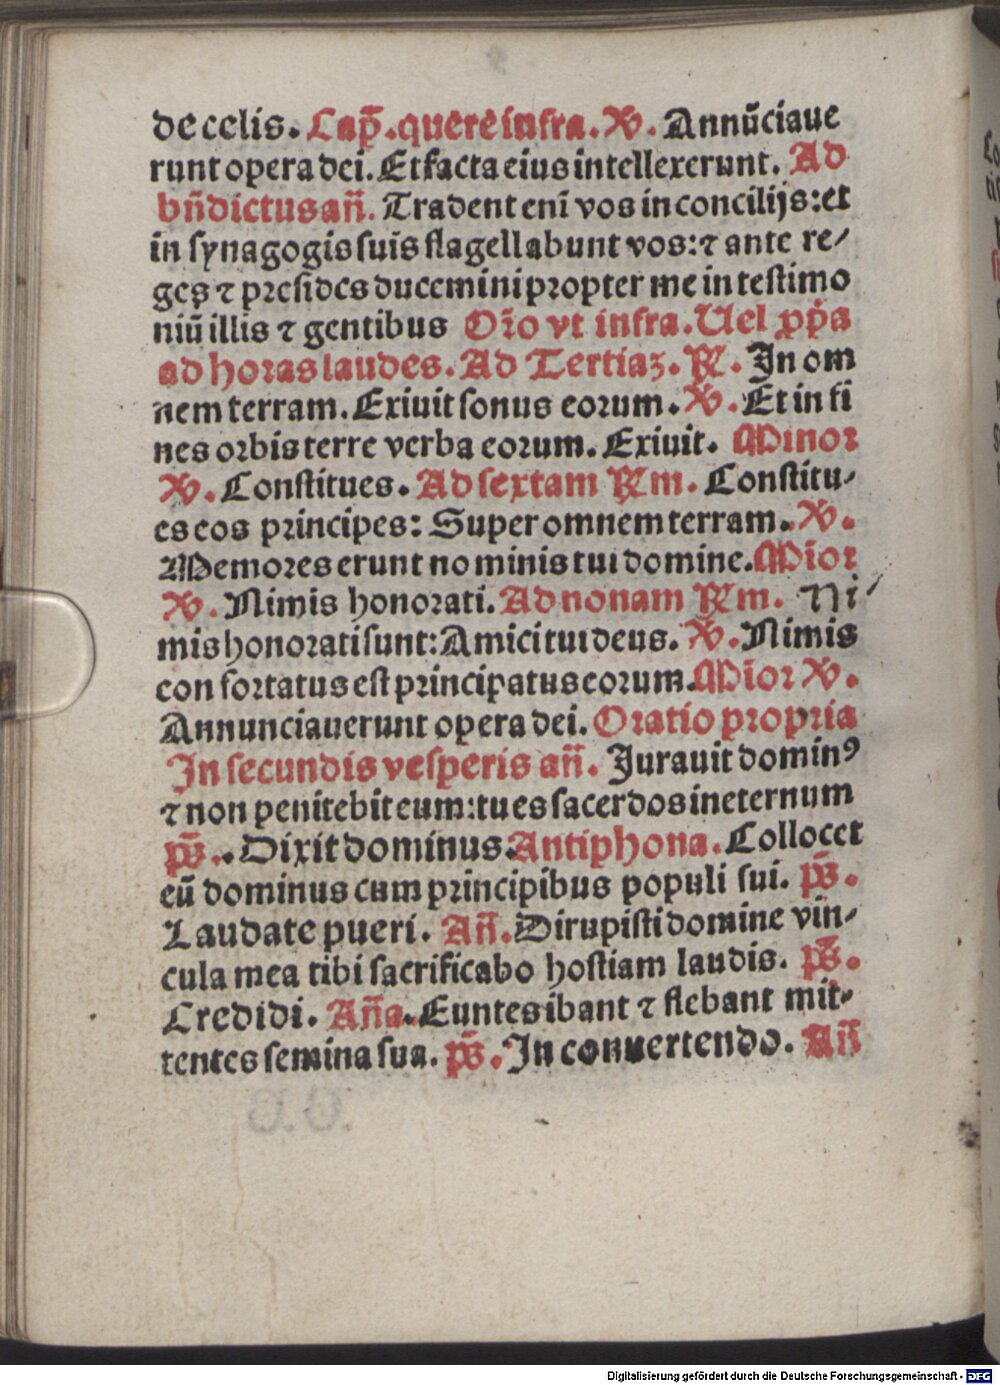 de celis. Cap̃. quere infra. ℣. Annũciaue
runt opera dei. Et facta eius intellexerunt. Ad
bñdictus añ. Tradent enĩ vos in concilijs: et
in synagogis suis flagellabunt vos: ⁊ ante re⸗
ges ⁊ presides ducemini propter me in testimo
niũ illis ⁊ gentibus Orõ vt infra. Uel pp̃a
ad horas laudes. Ad Tertiaꝫ. ℟. In om
nem terram. Exiuit sonus eorum. ℣. Et in fi
nes orbis terre verba eorum. Exiuit. Minor
℣. Constitues. Ad sextam ℟m. Constitu⸗
es eos principes: Super omnem terram. ℣.
Memores erunt nominis tui domine. Mĩor
℣. Nimis honorati. Ad nonam ℟m. Ni⸗
mis honorati sunt: Amici tui deus. ℣. Nimis
confortatus est principatus eorum. Mĩor ℣.
Annunciauerunt opera dei. Oratio propria
In secundis vesperis añ. Jurauit dominꝰ
⁊ non penitebit eum: tu es sacerdos ineternum
p̃s. Dixit dominus. Antiphona. Collocet
eũ dominus cum principibus populi sui. p̃s.
Laudate pueri. Añ. Dirupisti domine vin⸗
cula mea tibi sacrificabo hostiam laudis. p̃s.
Credidi. Aña. Euntes ibant ⁊ flebant mit⸗
tentes semina sua. p̃s. In conuertendo. Añ
Digitalisierung gefördert durch die Deutsche Forschungsgemeinschaft - DFG